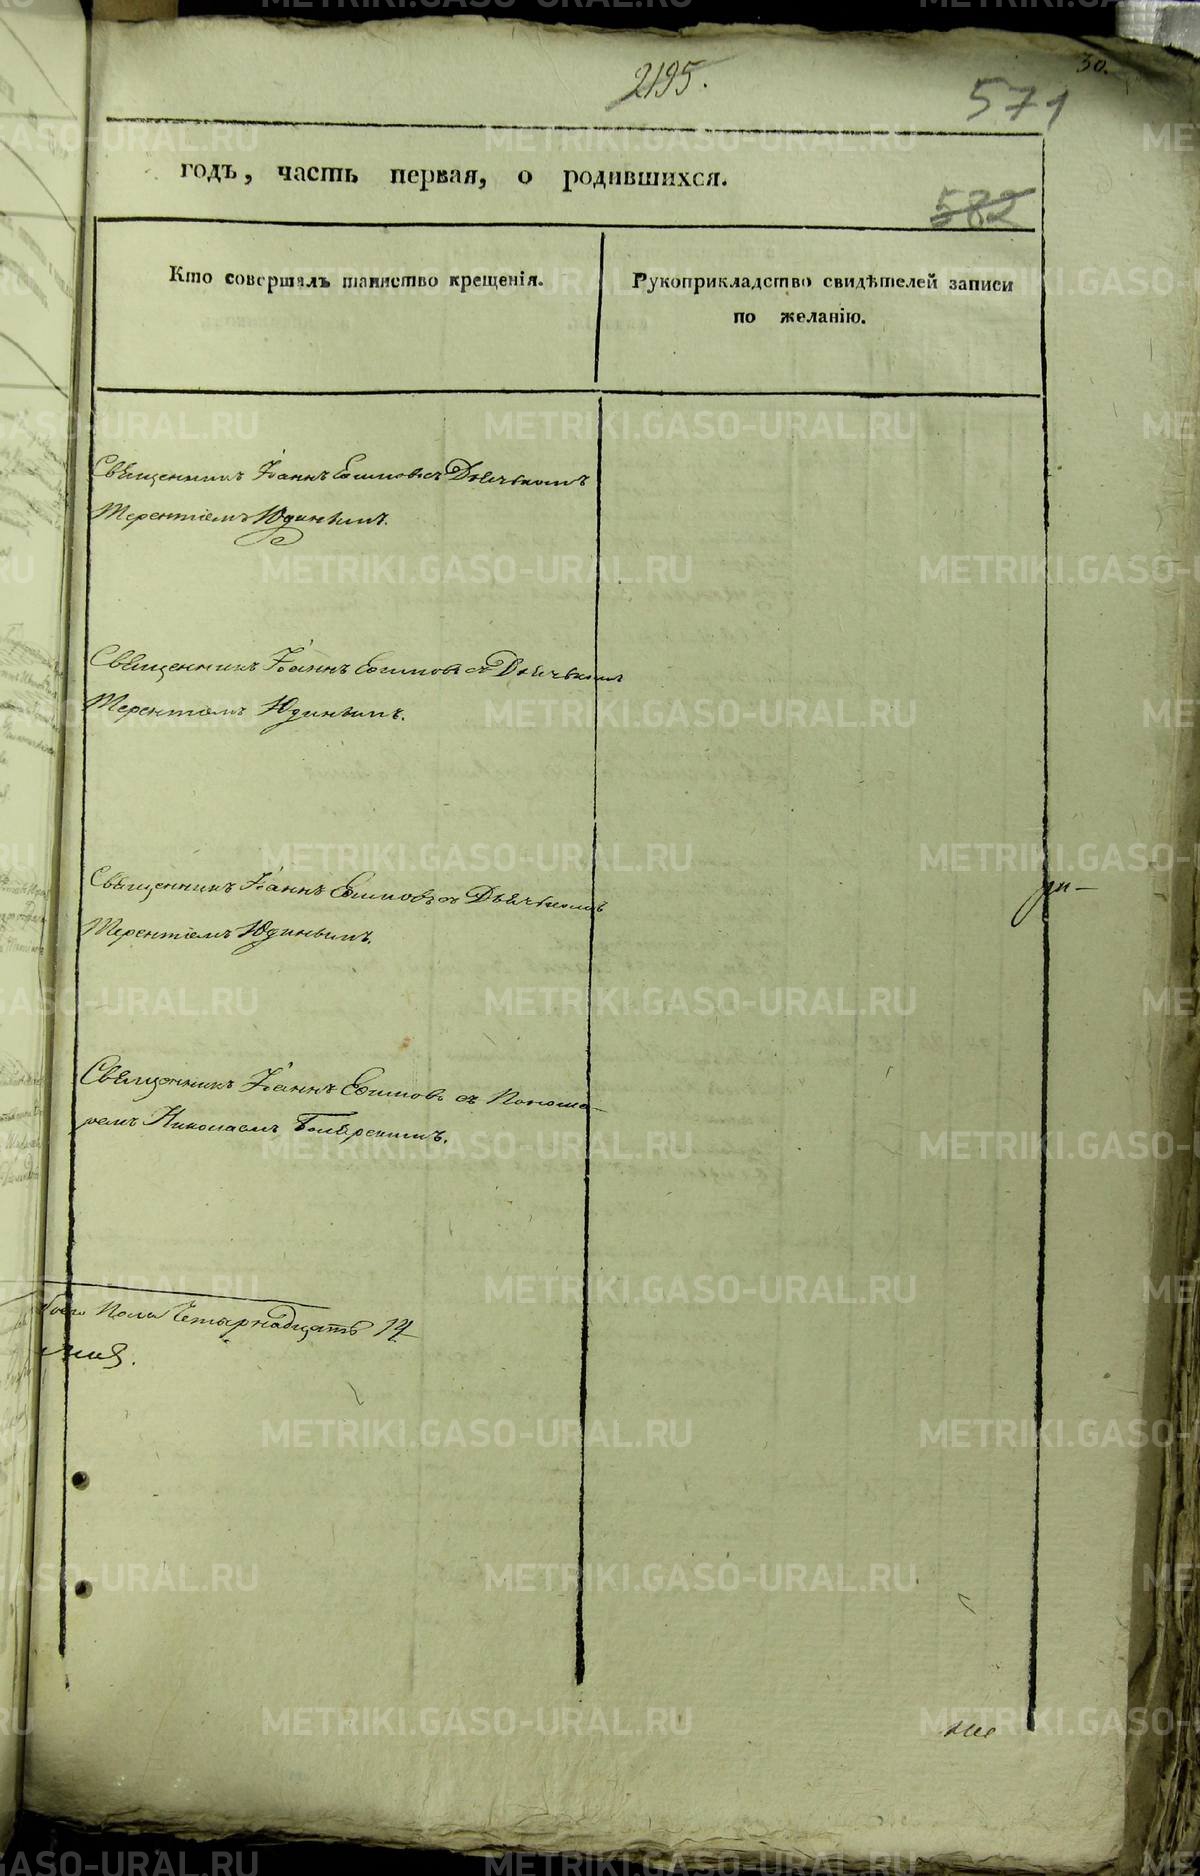 30.
2195.
571
годъ, часть первая, о родившихся.
582
Кто совершалъ таинство крещенія.
Рукоприкладство свидѣтелей записи
по желанію.
Священникъ Іоаннъ Ефимовъ съ Дьячькомъ
Терентіемъ Юдинымъ.
Священникъ Іоаннъ Ефимовъ съ Дьячькомъ
Терентіемъ Юдинымъ.
Священникъ Іоаннъ Ефимовъ съ Дьячькомъ
Терентіемъ Юдинымъ.
Священникъ Іоаннъ Ефимовъ съ Понома-
ремъ Николаемъ
пола Четырнадцать 14
METRIKI.GASO-URAL.RU